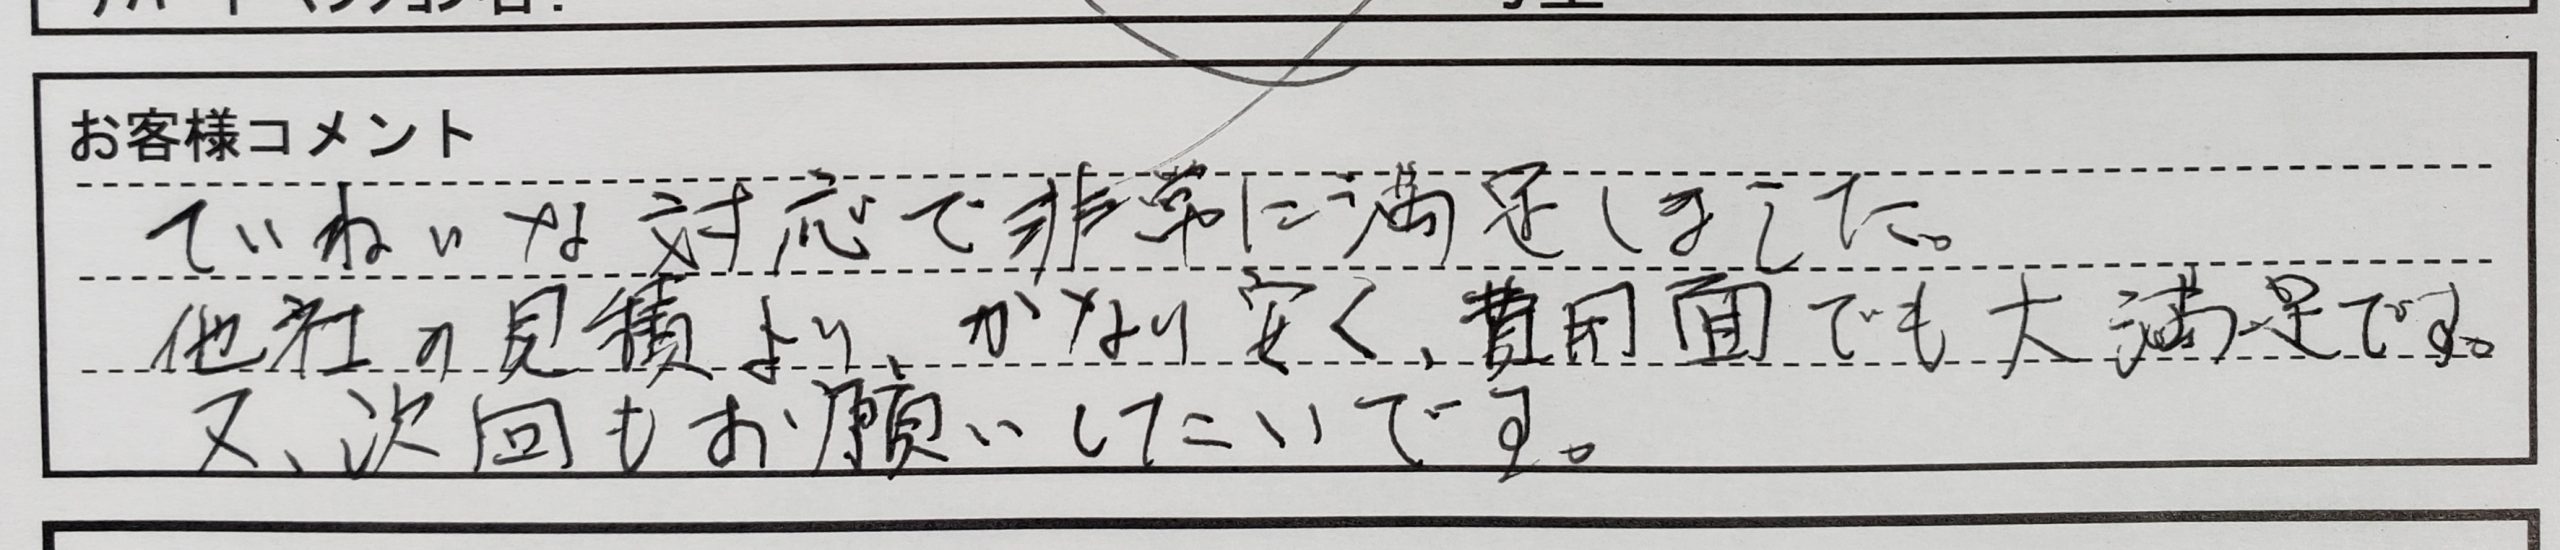 アパート・マンション名:　　号室
お客様コメント
ていねいな対応で非常に満足しました。
他社の見積より、かなり安く、費用面でも大満足です。
又、次回もお願いしたいです。